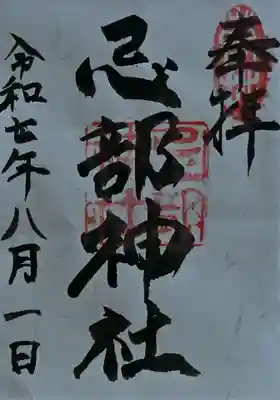 奉拝
忌部神社
令和七年八月一日